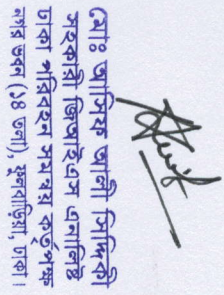 মোঃ আসিক আলী সিদ্দিকী
সহকারী ডিআইএস এনালিষ্ট
ঢাকা পরিবহন সমন্বয় কর্তৃপক্ষ
নগর ভবন (১৪ তলা), ফুলবাড়িয়া, ঢাকা।